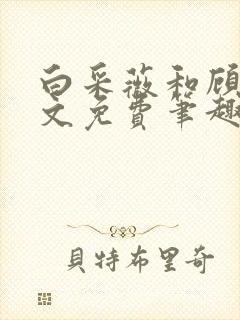 白采薇和顾
文免费笔趣
貝特布里奇